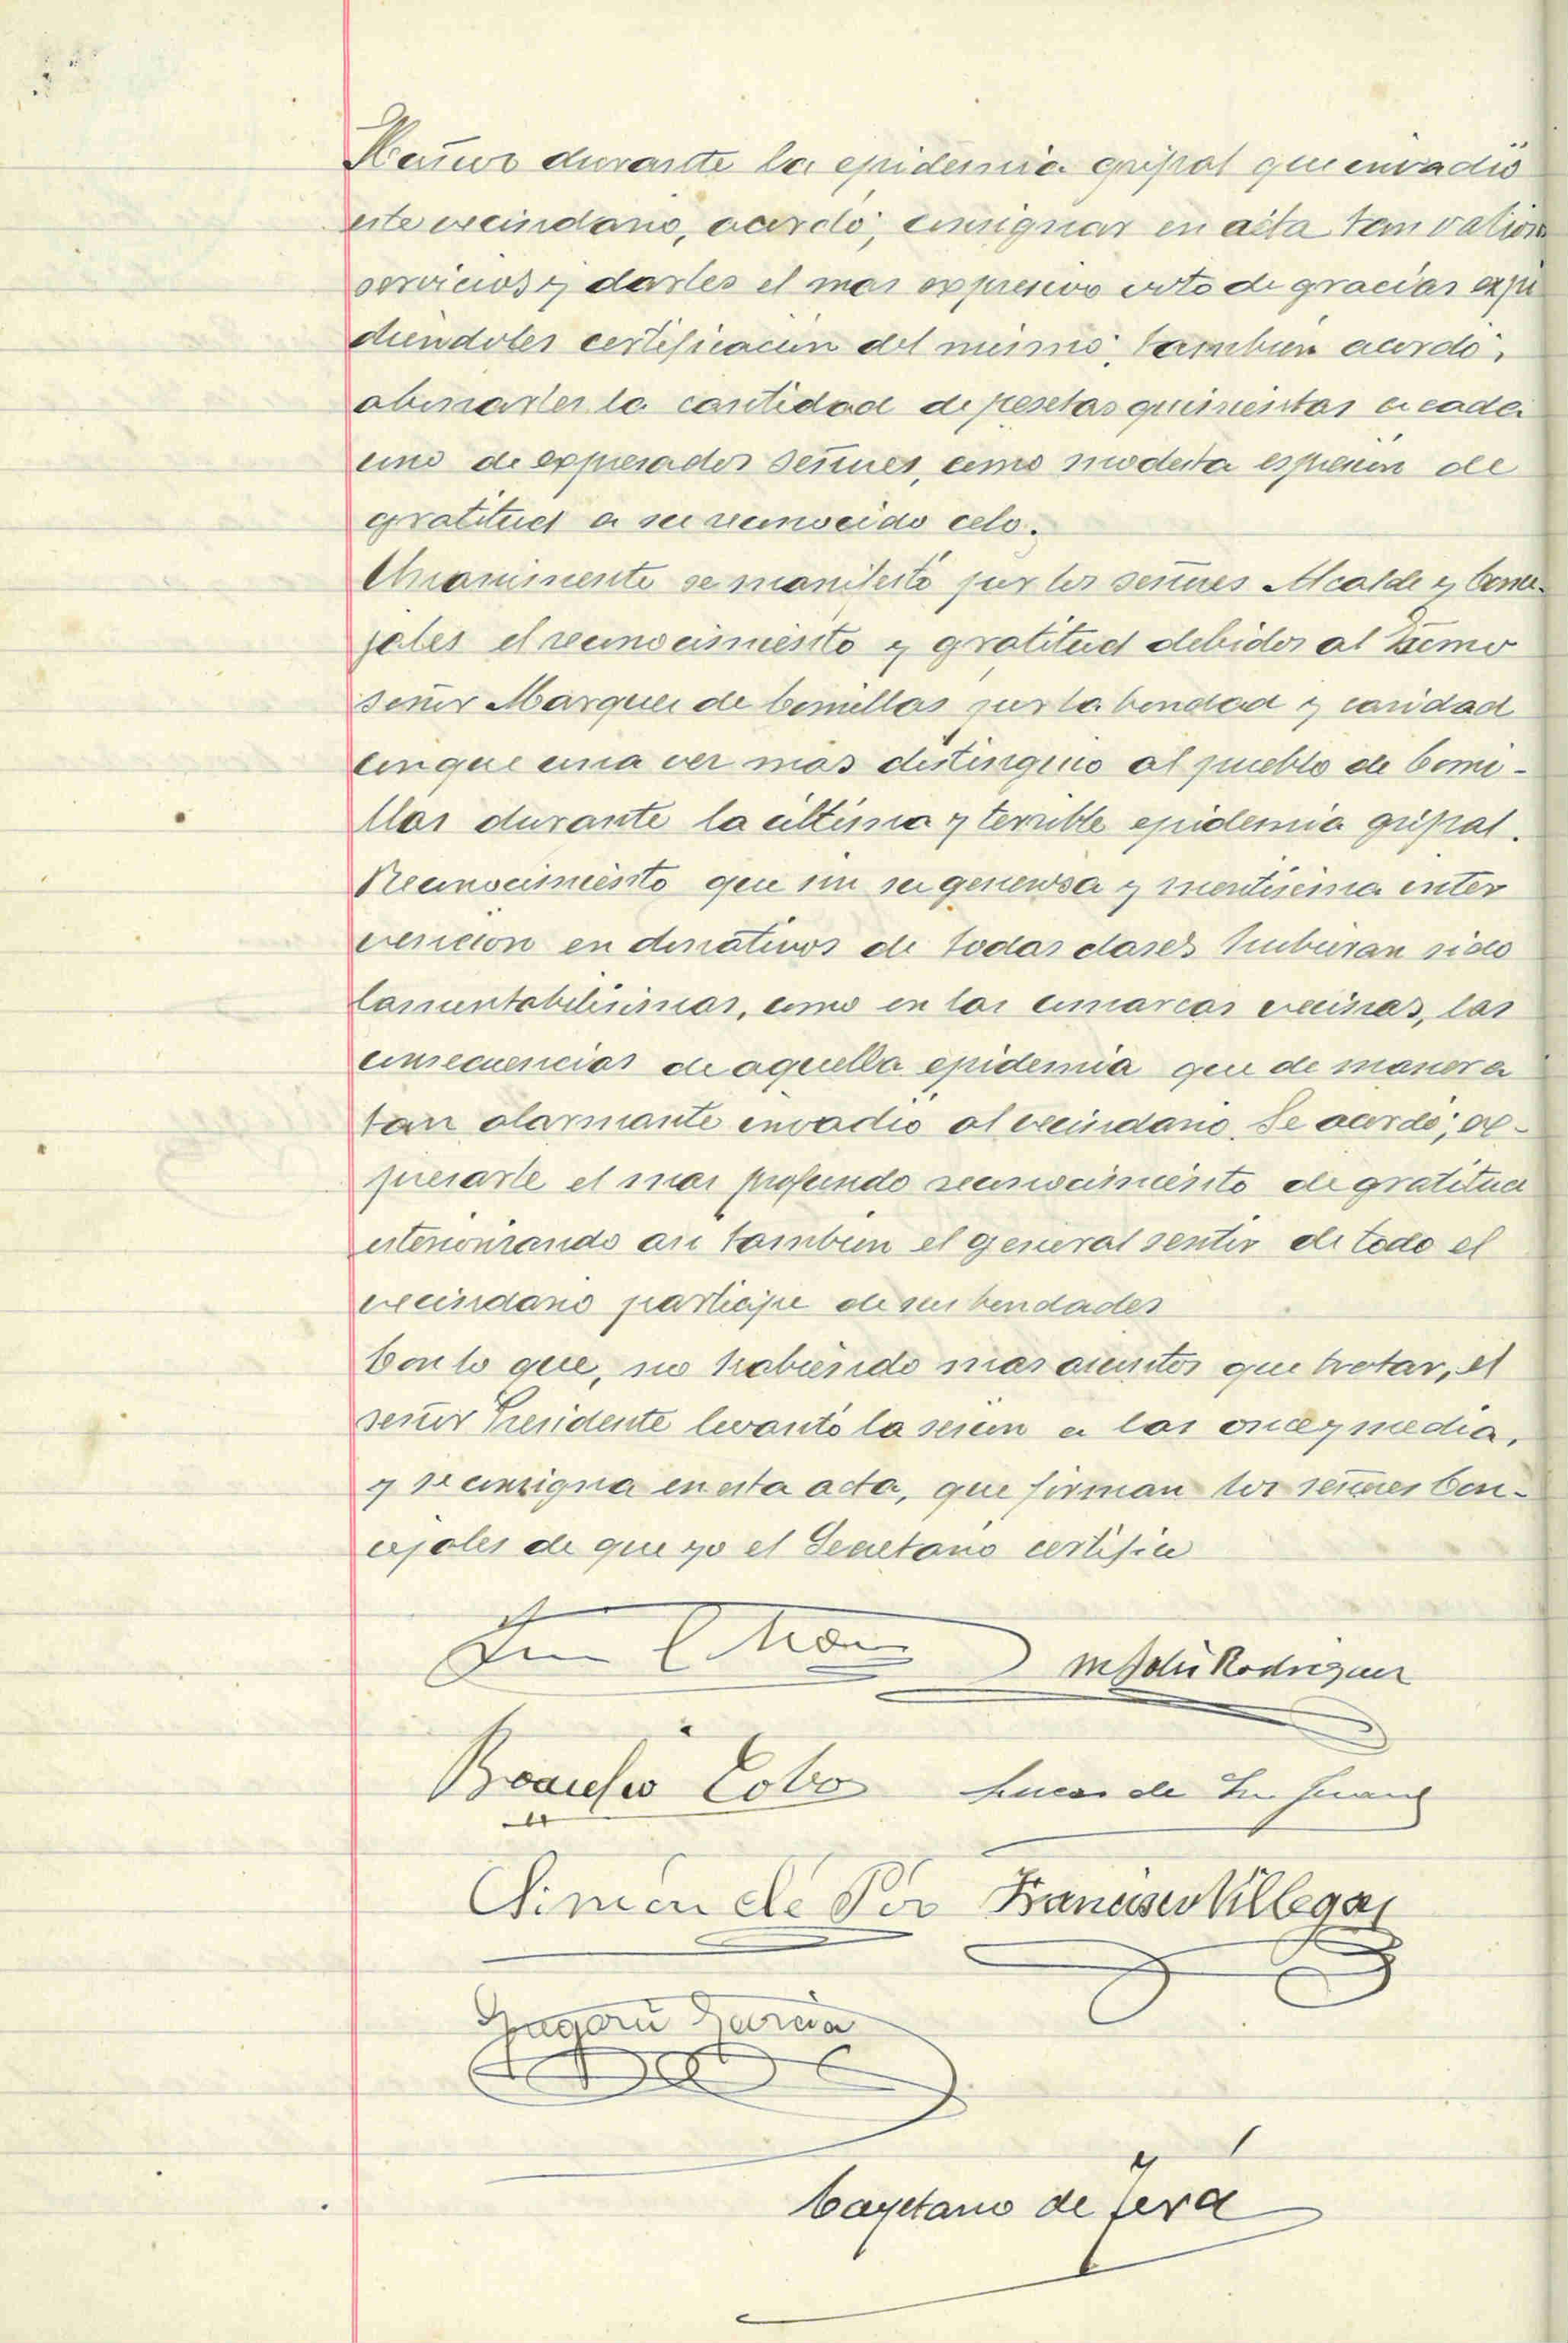 durante la epidemia gripal que invadió
este vecindario, acordó; consignar en acta tan valiosos
servicios y darles el mas expresivo voto de gracias expi
diendoles certificación del mismo; tambien acordó;
abonarles la cantidad de pesetas quinientas a cada
uno de expresados señores, como modesta espresión de
gratitud a su reconocido celo.
Unanimente se manifestó por los señores Alcalde y Conce-
jales el reconocimiento y gratitud debidos al Excmo
señor Marques de Comillas por la bondad y caridad
con que una vez más distinguio al pueblo de Comi-
llas durante la última y terrible epidemia gripal.
Reconocimiento que sin su generosa y meritisima inter
vención en donativos de todas clases hubieran sido
lamentabilisimas, como en las comarcas vecinas, las
consecuencias de aquella epidemia que de manera
tan alarmante invadió al vecindario. Se acordó; ex-
presarle el mas profundo reconocimiento de gratitud
esteriorizando asi tambien el general sentir de todo el
vecindario participe de sus bondades
Con lo que, no habiendo mas asuntos que tratar, el
señor Presidente levantó la sesión a las once y media,
y se consigna en esta acta, que firman los señores Con-
cejales de que yo el Secretario certifico
Rodriguez
Braulio Cobo Lucas de
Simón de Pór Francisco Villegas
Gregorio Garcia
Cayetano de